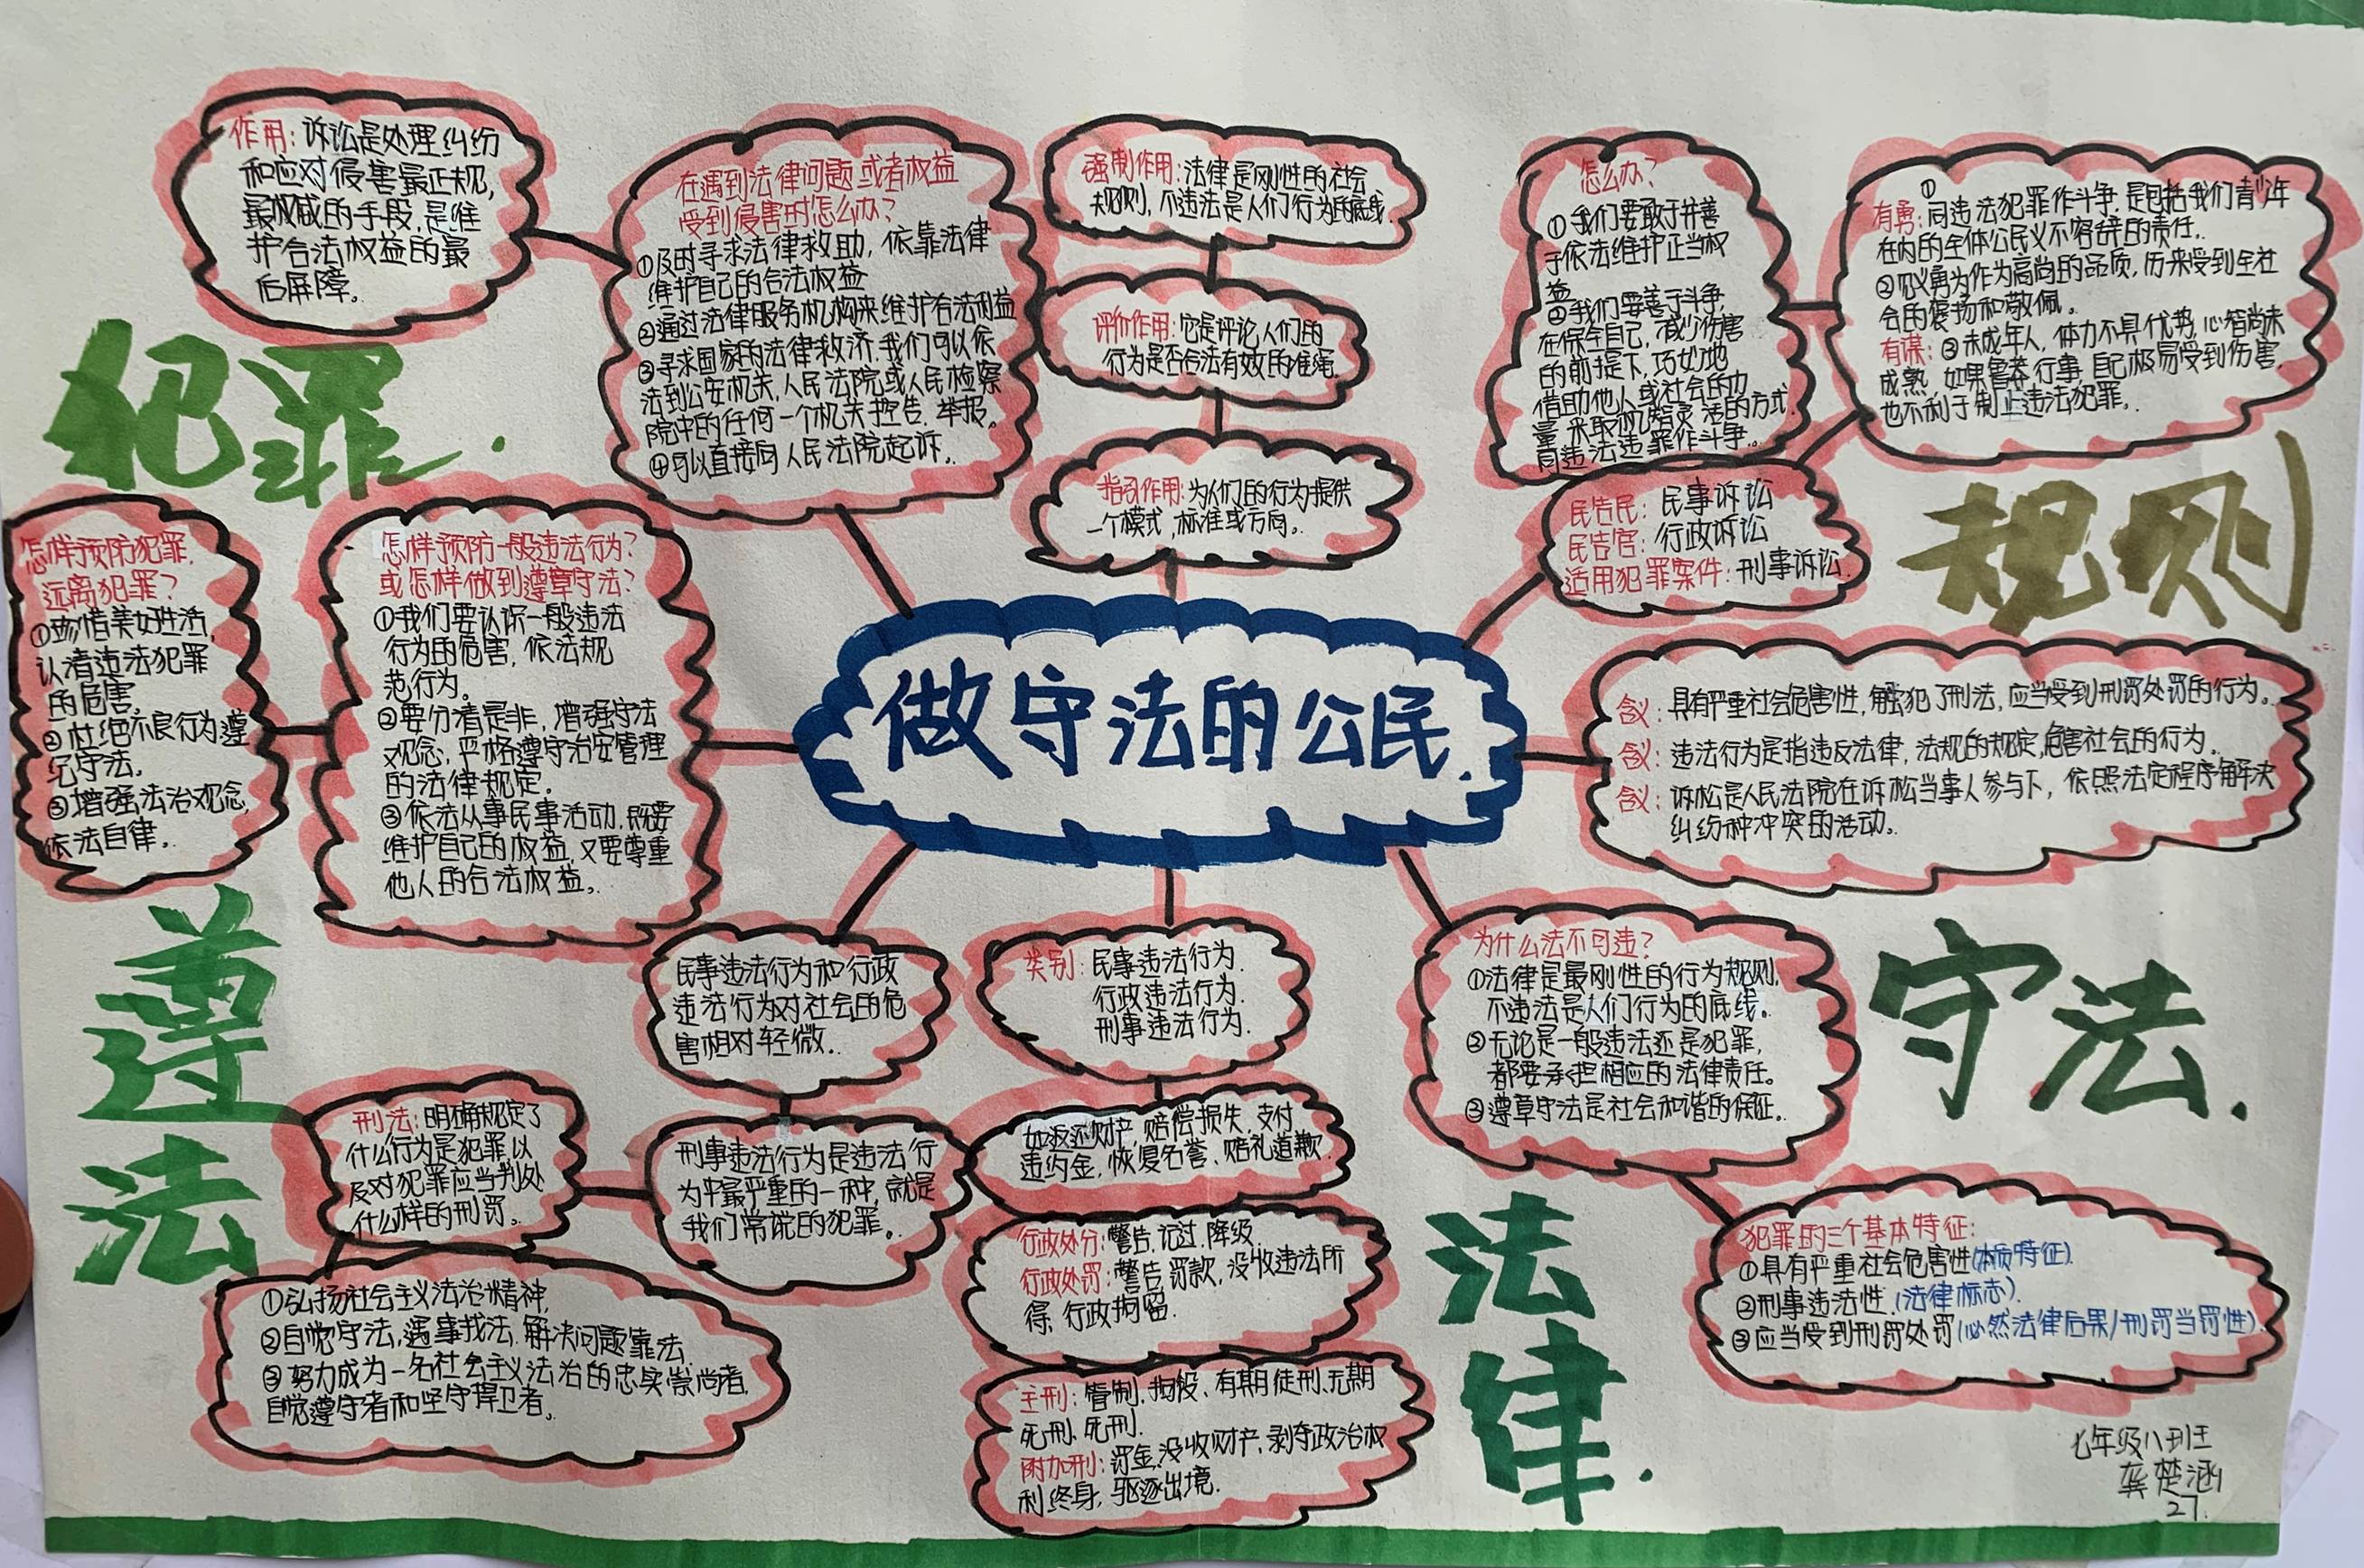 作用:诉讼是处理纠纷
和应对侵害最正规,
最权威的手段,是维
护合法权益的最
后屏障。
在遇到法律问题或者权益
受到侵害时怎么办?
①及时寻求法律救助,依靠法律
维护自己的合法权益
②通过法律服务机构来维护合法利益
③寻求国家的法律救济,我们可以依
法到公安机关,人民法院或人民检察
院中的任何一个机关控告,举报。
④可以直接向人民法院起诉。
强制作用:法律是刚性的社会
规则,不违法是人们行为的底线。
评价作用:它是评论人们的
行为是否合法有效的准绳。
指引作用:为人们的行为提供
一个模式,标准或方向。
怎么办?
①我们要敢于并善
于依法维护正当权
益
②我们要善于斗争,
在保全自己,减少伤害
的前提下,巧妙地
借助他人或社会的力
量,采取机智灵活的方式
同违法违罪作斗争。
①
有勇:同违法犯罪作斗争,是包括我们青少年
在内的全体公民义不容辞的责任。
②见义勇为作为高尚的品质,历来受到全社
会的褒扬和敬佩。
有谋:③未成年人,体力不具优势,心智尚未
成熟,如果鲁莽行事,自己极易受到伤害,
也不利于制止违法犯罪。
犯罪.
规则
民告民:民事诉讼
民告官:行政诉讼
适用犯罪案件:刑事诉讼.
怎样预防犯罪,
远离犯罪?
①珍惜美好生活,
认清违法犯罪
的危害。
②杜绝不良行为遵
纪守法。
③增强法治观念,
依法自律。
怎样预防一般违法行为?
或怎样做到遵章守法?
①我们要认识一般违法
行为的危害,依法规
范行为。
②要分清是非,增强守法
观念;严格遵守治安管理
的法律规定。
③依法从事民事活动,既要
维护自己的权益,又要尊重
他人的合法权益。
做守法的公民.
含义:具有严重社会危害性,触犯了刑法,应当受到刑罚处罚的行为。
含义:违法行为是指违反法律,法规的规定,危害社会的行为。
含义:诉讼是人民法院在诉讼当事人参与下,依照法定程序解决
纠纷种冲突的活动。
遵法
民事违法行为和行政
违法行为对社会的危
害相对轻微.
类别:民事违法行为.
行政违法行为.
刑事违法行为.
为什么法不可违?
①法律是最刚性的行为规则,
不违法是人们行为的底线。
②无论是一般违法还是犯罪,
都要承担相应的法律责任。
③遵章守法是社会和谐的保证.
守法.
刑法:明确规定了
什么行为是犯罪,以
及对犯罪应当判处
什么样的刑罚。
刑事违法行为是违法行
为中最严重的一种,就是
我们常说的犯罪。
如返还财产,赔偿损失,支付
违约金,恢复名誉、赔礼道歉.
行政处分:警告,记过,降级.
行政处罚:警告,罚款,没收违法所
得,行政拘留.
①弘扬社会主义法治精神,
②自觉守法,遇事找法,解决问题靠法
③努力成为一名社会主义法治的忠实崇尚者,
自觉遵守者和坚守捍卫者。
主刑:管制,拘役、有期徒刑,无期
死刑、死刑.
附加刑:罚金,没收财产,剥夺政治权
利终身,驱逐出境.
法律.
犯罪的三个基本特征:
①具有严重社会危害性(本质特征).
②刑事违法性.(法律标志).
③应当受到刑罚处罚(必然法律后果/刑罚当罚性).
七年级八班
龚楚涵
27.